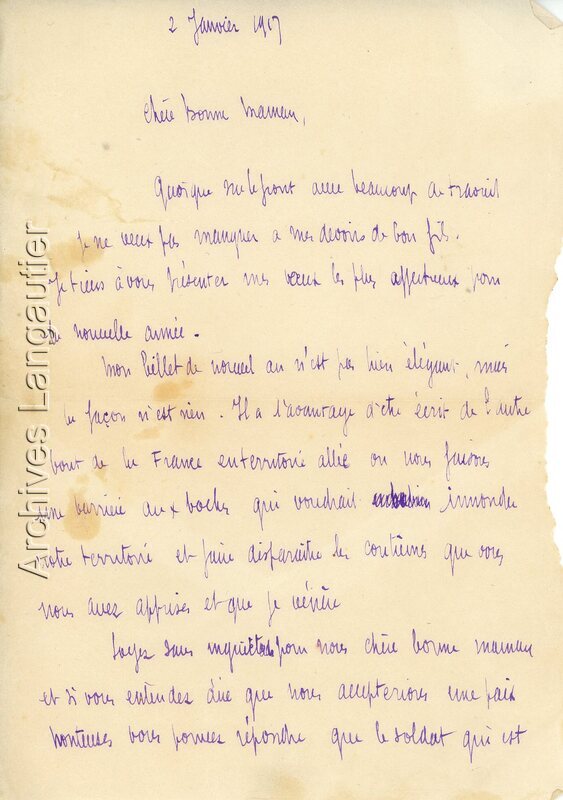 2 Janvier 1917
Chère Bonne Maman,
Quoique sur le front avec beaucoup de travail
je ne veux pas manquer a mes devoirs de bon fils.
Je tiens à vous présenter mes vœux les plus affectueux pour
la nouvelle année.
Mon billet de nouvel an n'est pas bien élégant, mais
la façon n'est rien. Il a l'avantage d'être écrit de l'autre
bout de la France en territoire allié ou nous faisons
une barrière aux boches qui voudrait inonder
notre territoire et faire disparaître les coutumes que vous
nous avez apprises et que je vénère
Soyez sans inquiétude pour nous chère bonne maman
et si vous entendez dire que nous accepterions une paix
honteuse vous pouvez répondre que le soldat qui est
Archives Langautier